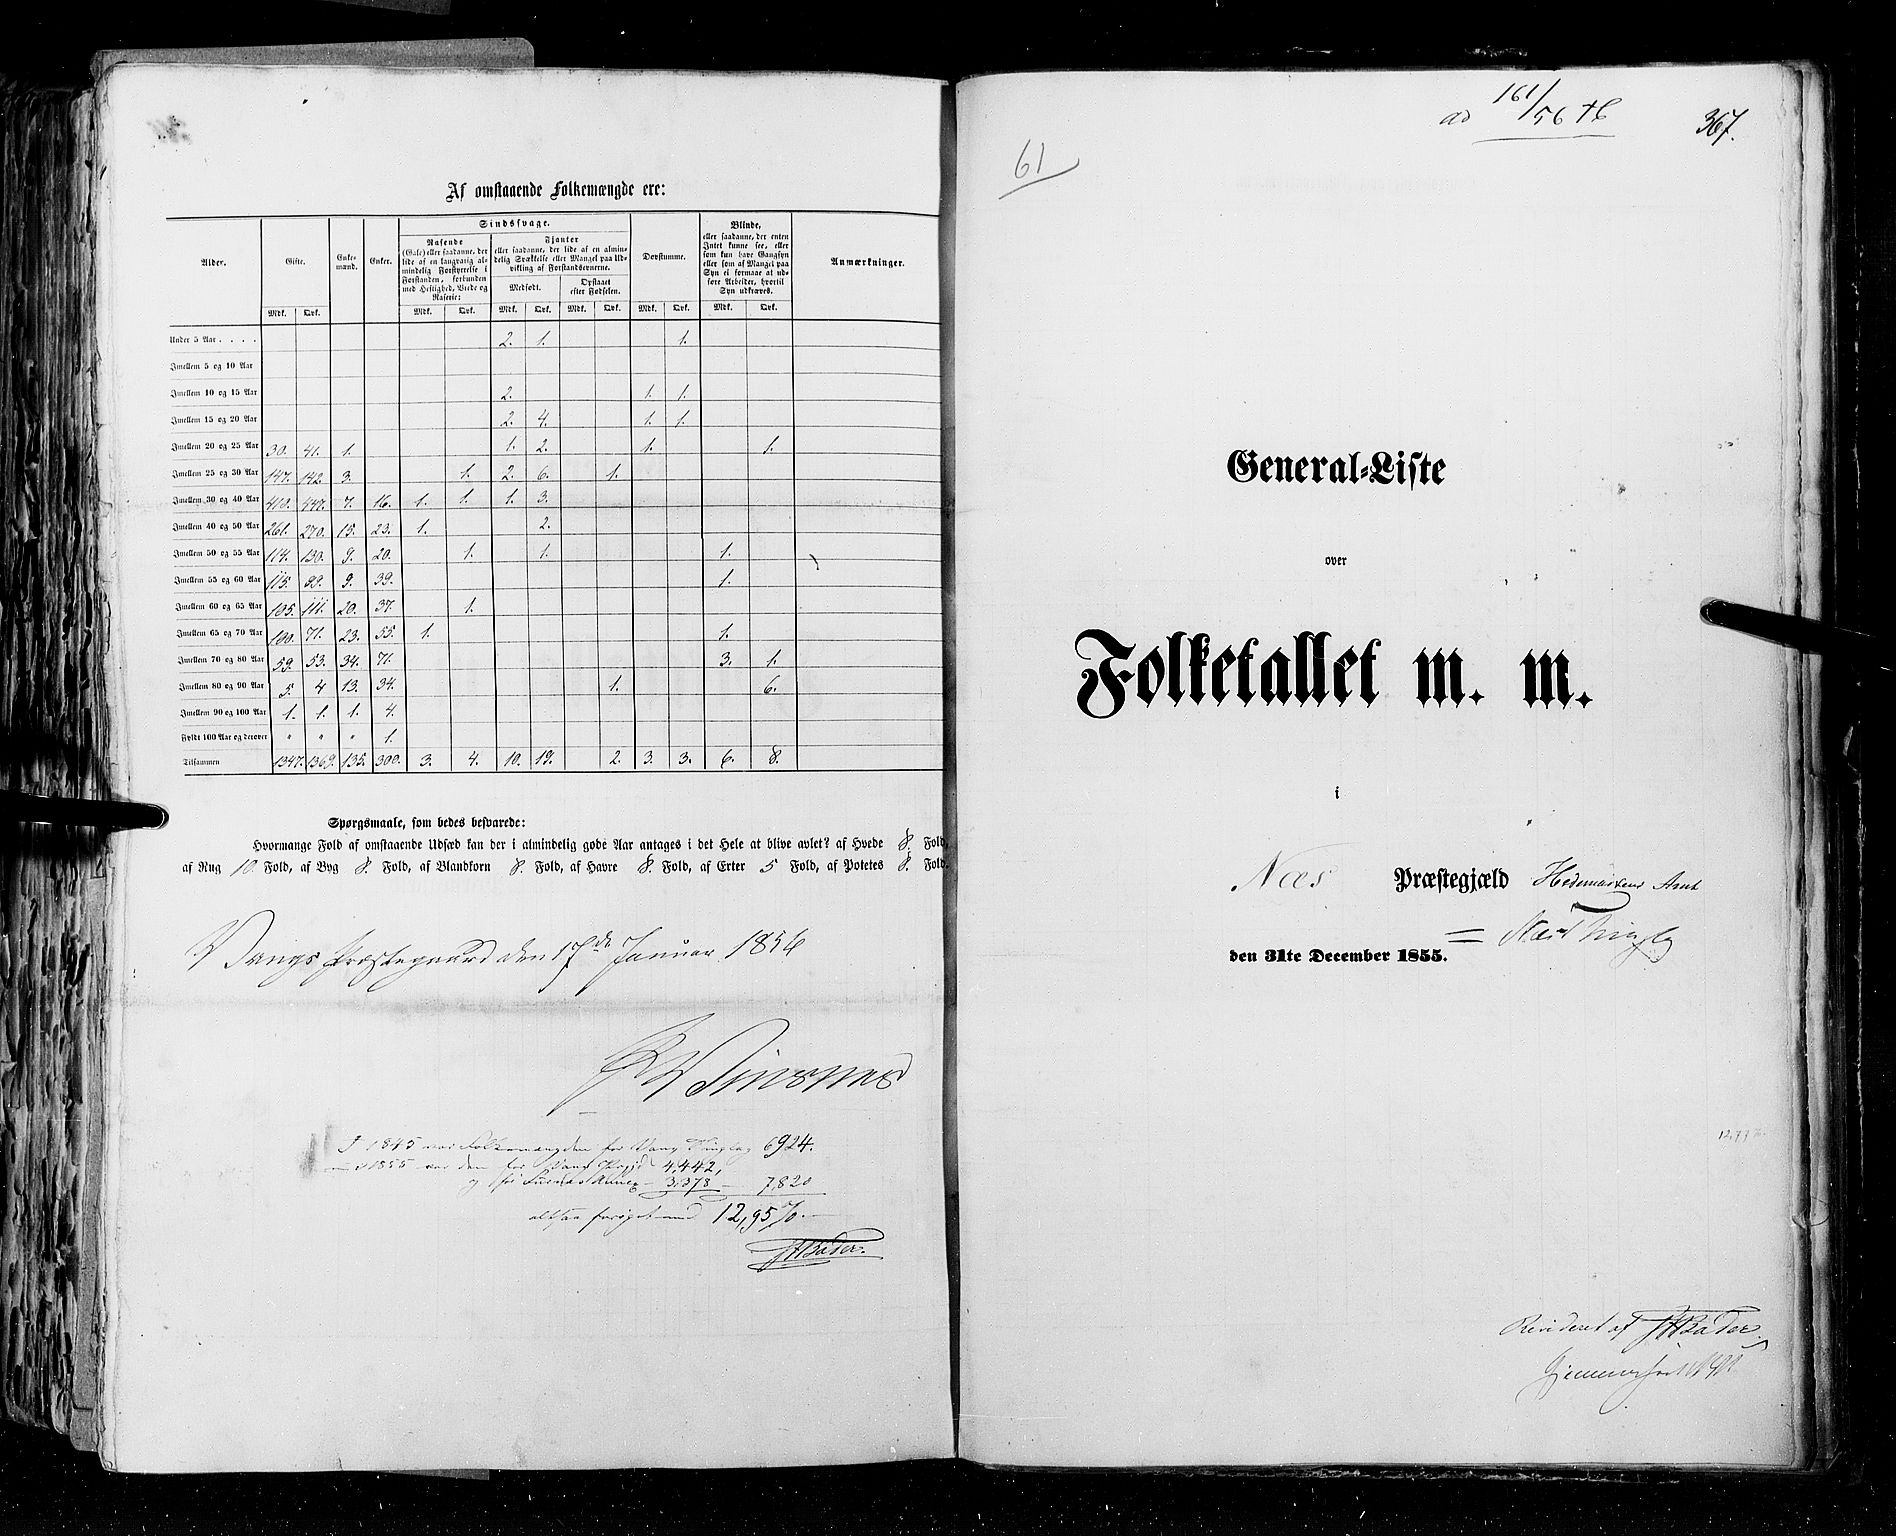 Af omstaaende Folkemængde ere:
Alder. Gifte. Enke-mænd. Enker. Sindssvage. Døvstumme. Blinde, Anmærkninger.
Rasende (Gale) eller saadanne, der lide af en langvarig almindelig Forstyrrelse i Forstanden, forbunden med Heftighed, Vrede og Raserie:
Fjanter eller saadanne, der lide af en almindelig Svækkelse eller Mangel paa Udvikling af Forstandsevnerne.
Medfødt. Opstaaet efter Fødselen.
eller saadanne, der enten Intet kunne see, eller som kun have Gangsyn eller som af Mangel paa Syn ei formaae at udføre Arbeider, hvortil Syn udkræves.
Mdk. Qvk. Mdk. Qvk. Mdk. Qvk. Mdk. Qvk. Mdk. Qvk. Mdk. Qvk.
Under 5 Aar . . . . 2. 1. 1.
Imellem 5 og 10 Aar
Imellem 10 og 15 Aar 2. 1. 1.
Imellem 15 og 20 Aar 2. 4. 1. 1.
Imellem 20 og 25 Aar 30. 41. 1. 1. 2. 1. 1.
Imellem 25 og 30 Aar 147. 142. 3. 1. 2. 6. 1.
Imellem 30 og 40 Aar 410. 447. 7. 16. 1. 1. 1. 3.
Imellem 40 og 50 Aar 261. 270. 15. 23. 1. 2.
Imellem 50 og 55 Aar 114. 130. 9. 20. 1. 1. 1.
Imellem 55 og 60 Aar 115. 99. 9. 39. 1.
Imellem 60 og 65 Aar 105. 111. 20. 37. 1.
Imellem 65 og 70 Aar 100. 71. 23. 55. 1. 1.
Imellem 70 og 80 Aar 59. 53. 34. 71. 3. 1.
Imellem 80 og 90 Aar 5. 4 13. 34. 1. 6.
Imellem 90 og 100 Aar 1. 1. 1. 4.
Fyldt 100 Aar og derover " " " 1.
Tilsammen 1347. 1369. 135. 300. 3. 4. 10. 19. 2. 3. 3. 6. 8.
Spørgsmaale, som bedes besvarede:
Hvormange Fold af omstaaende Udsæd kan der i almindelig gode Aar antages i det Hele at blive avlet? af Hvede 8. Fold,
af Rug 10. Fold, af Byg 8. Fold, af Blandkorn 8. Fold, af Havre 8. Fold, af Erter 5 Fold, af Potetes 8. Fold.
Vangs Præstegaard den 17de Januar 1856
I 1845 var Folkemængden for Vang Thinglag 6924.
i 1855 var den for Vang Prgjd 4,442,
og for Furnes Annex 3,378 7,820
altsaa forøget med 12,95 %
ad 161/56
367.
61
General-Liste
over
Folketallet m. m.
i
Næs Præstegjæld Hedemarkens Amt
= Næs Thinglag
den 31te December 1855.
Revideret af